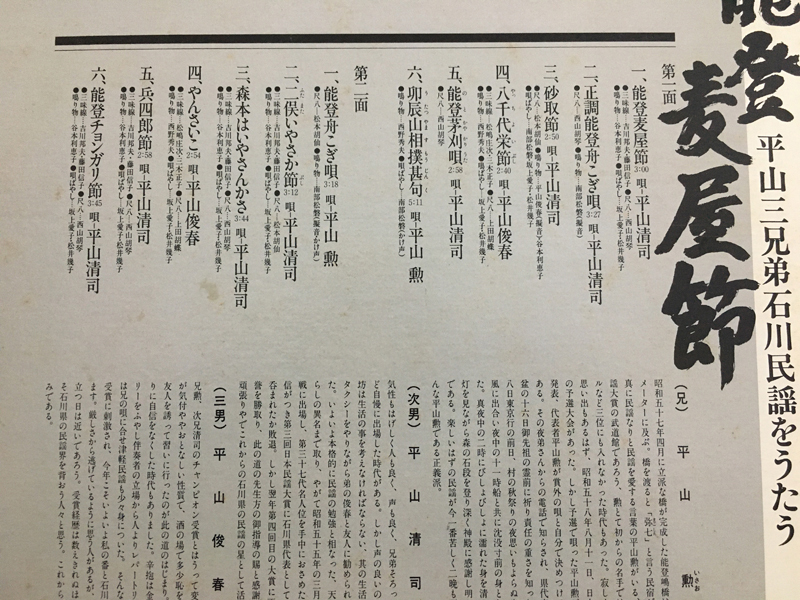 能登麦屋節
平山三兄弟石川民謡をうたう
第一面
一、能登麦屋節 3:00 唄―平山清司
●尺八―松本胡仙●鳴り物―南部松磐(擬音)
二、正調能登舟こぎ唄 3:27 唄―平山清司
三、砂取節 2:50 唄―平山 勲
四、八千代栄節 2:40 唄―平山俊春
五、能登茅刈唄 2:58 唄―平山清司
●尺八―西山胡琴
六、卯辰山相撲甚句 5:11 唄―平山 勲
●鳴り物―西野秀夫●唄ばやし―南部松磐(かけ声)
第二面
一、能登舟こぎ唄 3:18 唄―平山 勲
●尺八―松本胡仙●鳴り物―南部松磐(擬音かけ声)
二、二俣いやさか節 3:12 唄―平山清司
●三味線―吉川邦夫・藤田信子●尺八―西山胡琴
●鳴り物―谷本利恵子●唄ばやし―坂上愛子・松井幾子
三、森本はいやさんかさ 3:44 唄―平山清司
●三味線―吉川邦夫・藤田信子●尺八―西山胡琴
●鳴り物―谷本利恵子●唄ばやし―坂上愛子・松井幾子
四、やんさいこ 2:54 唄―平山俊春
●鳴り物―西野秀夫●唄ばやし―坂上愛子・松井幾子
五、兵四郎節 2:58 唄―平山清司
●三味線―吉川邦夫・藤田信子●尺八―西山胡琴
●鳴り物―谷本利恵子●唄ばやし―坂上愛子・松井幾子
六、能登チョンガリ節 3:45 唄―平山清司
●三味線―吉川邦夫・藤田信子●尺八―西山胡琴
●鳴り物―谷本利恵子●唄ばやし―坂上愛子・松井幾子
(兄) 平山 勲
昭和五十七年四月に立派な橋が完成した能登嶋橋
メーターに及ぶ。橋を渡ると"弥七"と言う民宿が
真に民謡なりと民謡を愛する言葉の平山勲がいる。
謡大賞の武道館であろう。勲とて初からの名手で
ルなど三位にも入れなかった時代もあった。寂し
思い出もあるはず、昭和五十八年八月十一日、日
の予選大会があった。しかし予選で唄った平山勲
発表、代表者平山勲が賞外の唄と自分で決めつけ
ある。その夜弟さんからの電話で知らされ、県代
盆の十六日御先祖の霊前に祈り責任の重さを知っ
八日東京行の前日、村の秋祭りの夜思いもよらぬ
風に出合い夜中の十一時船と共に沈没寸前の身と
た。真夜中の二時にびしょびしょに濡れた身を清
灯を見ながら森の石段を登り深く神殿に感謝し明
である。楽しいはずの民謡が今一番苦しく二晩も
んな平山勲である正義派。
(次男) 平山清司
気性もはげしく人も良く、声も良く、兄弟そろっ
ど自慢に出場した時代がある。しかし声の良いの
坊は生活の事を考えなければならない、其の生活
タクシーをやりながら弟の俊春と友人に勧められ
た。いよいよ本格的に民謡の勉強と相なった。天
らしの異名まで取り、やがて昭和五十五年の三月
戦に出場し、第三十七代名人位を手中におさめた
信がつき第三回日本民謡大賞に石川県代表として
呑まれたか敗退。しかし翌年第四回目の大賞に一
誉を勝取り、此の道の先生方の御指導の賜と感謝
頑張りやでこれからの石川県の民謡の星として活
(三男) 平山俊春
兄勲、次兄清司のチャンピオン受賞とはうって変
が気付ややおとなしい性質で、酒の場で多少恥を
友人を誘って習いに行ったのが此の道のはじまり。
りに自信をなくした時代もありました。辛抱は金
リーをふやし伴奏者の立場から人よりレパートリ
は兄の唄に合せ津軽民謡も少々身についた。そんな
受賞に刺激され、今年こそいよいよ私の番と石川
ます。厳しさから逃げているように思う人があるが、
立つ日は近いであろう。受賞経歴は数えきれぬほ
そ石川県の民謡界を背おう人々と思う。これから
みである。